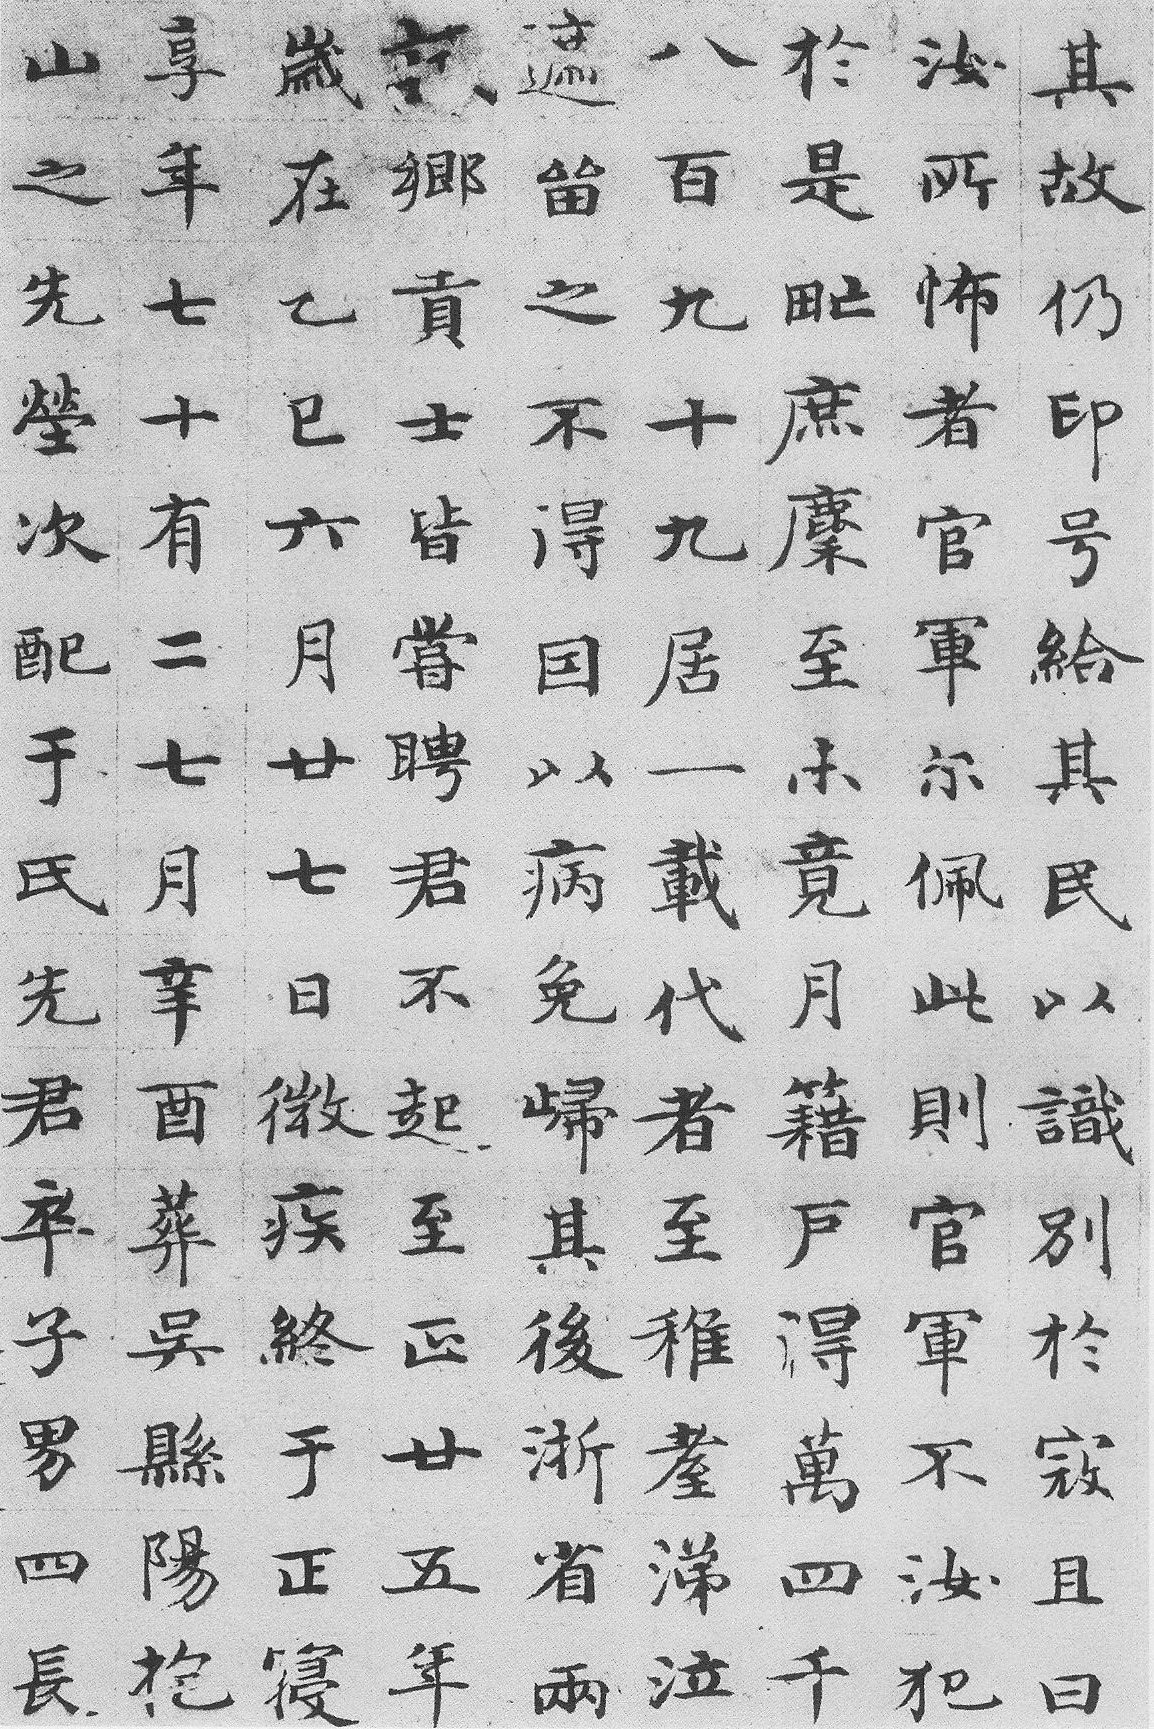 其故仍印号給其民以識別於寇且曰
汝所怖者官軍尔佩此則官軍不汝犯
於是甿庶麇至未竟月籍戶得萬四千
八百九十九居一載代者至稚耋涕泣
遮留之不得囙以病免歸其後浙省兩
試鄉貢士皆嘗聘君不起至正廿五年
歲在乙巳六月廿七日微疾終于正寢
享年七十有二七月辛酉葬吳縣陽抱
山之先塋次配于氏先君卒子男四長